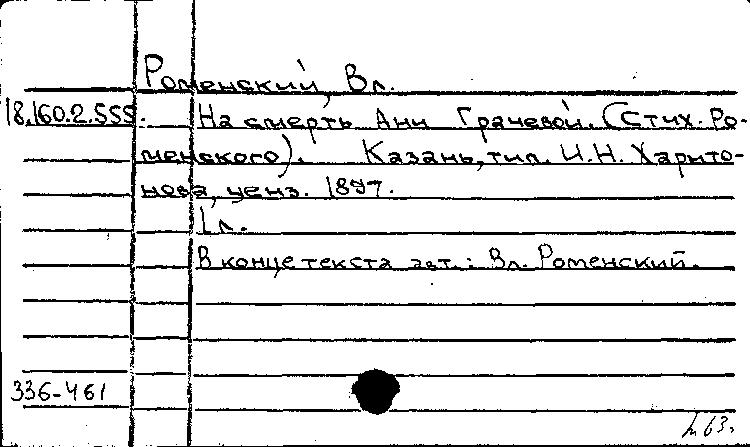 Роменский, Вл.
18.160.2.555. На смерть Ани Грачевой. (Стих. Ро-
менского). Казань, тип. И.Н. Харито-
нова, ценз. 1897.
1 л.
В конце текста авт.: Вл. Роменский.
336-461
63.